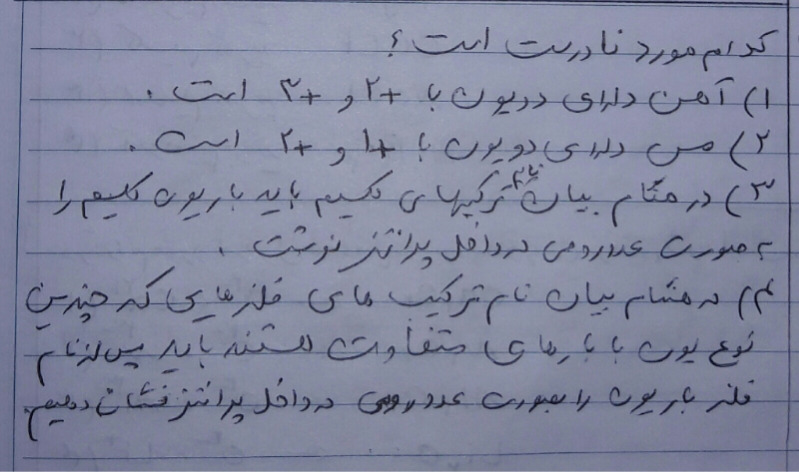 کدام مورد نادرست است ؟
۱) آهن دارای دو یون با +۲ و +۳ است .
۲) مس دارای دو یون با +۱ و +۲ است .
۳) در هنگام بیان نام ترکیبهای کلسیم باید بار یون کلسیم را
به صورت عدد رومی در داخل پرانتز نوشت .
۴) در هنگام بیان نام ترکیب های فلزهایی که چندین
نوع یون با بارهای متفاوت هستند باید پس از نام
فلز بار یون را بصورت عدد رومی در داخل پرانتز نشان دهیم.